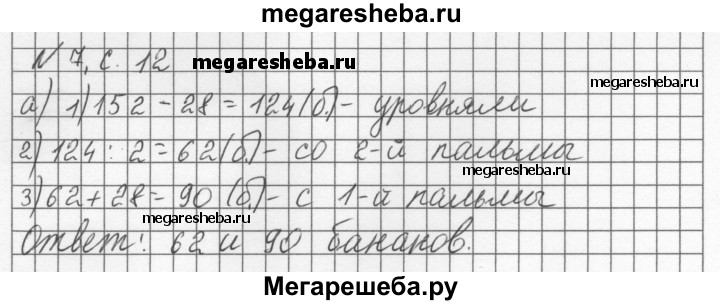 megaresheba.ru
№ 7, с. 12 megaresheba.ru
megaresheba.ru
а) 1) 152 - 28 = 124 (б.) - уровняли
2) 124 : 2 = 62 (б.) - со 2-й пальмы
3) 62 + 28 = 90 (б.) - с 1-й пальмы
megaresheba.ru megaresheba.ru
Ответ: 62 и 90 бананов.
Мегарешеба.ру